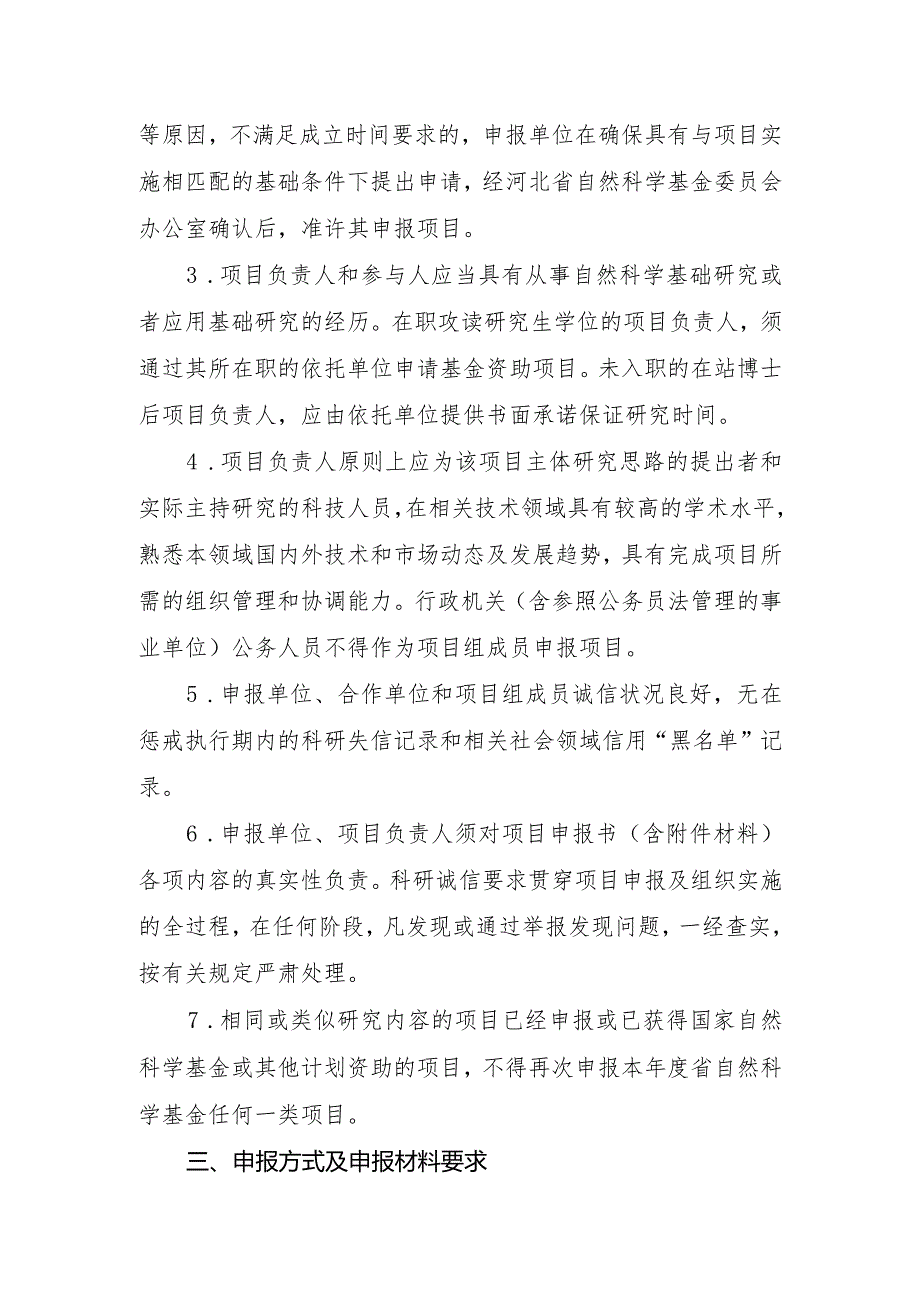 等原因，不满足成立时间要求的，申报单位在确保具有与项目实
施相匹配的基础条件下提出申请，经河北省自然科学基金委员会
办公室确认后，准许其申报项目。
3.项目负责人和参与人应当具有从事自然科学基础研究或
者应用基础研究的经历。在职攻读研究生学位的项目负责人，须
通过其所在职的依托单位申请基金资助项目。未入职的在站博士
后项目负责人，应由依托单位提供书面承诺保证研究时间。
4.项目负责人原则上应为该项目主体研究思路的提出者和
实际主持研究的科技人员，在相关技术领域具有较高的学术水平，
熟悉本领域国内外技术和市场动态及发展趋势，具有完成项目所
需的组织管理和协调能力。行政机关（含参照公务员法管理的事
业单位）公务人员不得作为项目组成员申报项目。
5.申报单位、合作单位和项目组成员诚信状况良好，无在
惩戒执行期内的科研失信记录和相关社会领域信用“黑名单”记
录。
6.申报单位、项目负责人须对项目申报书（含附件材料）
各项内容的真实性负责。科研诚信要求贯穿项目申报及组织实施
的全过程，在任何阶段，凡发现或通过举报发现问题，一经查实，
按有关规定严肃处理。
7.相同或类似研究内容的项目已经申报或已获得国家自然
科学基金或其他计划资助的项目，不得再次申报本年度省自然科
学基金任何一类项目。
三、申报方式及申报材料要求